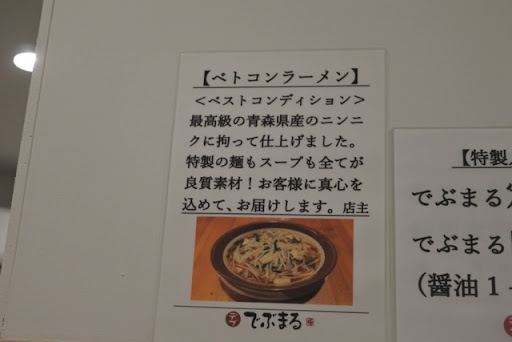 【ベトコンラーメン】
<ベストコンディション>
最高級の青森県産のニンニ
クに拘って仕上げました。
特製の麺もスープも全てが
良質素材！お客様に真心を
込めて、お届けします。店主
でぶまる
【特製
でぶまる
でぶまる
（醤油1